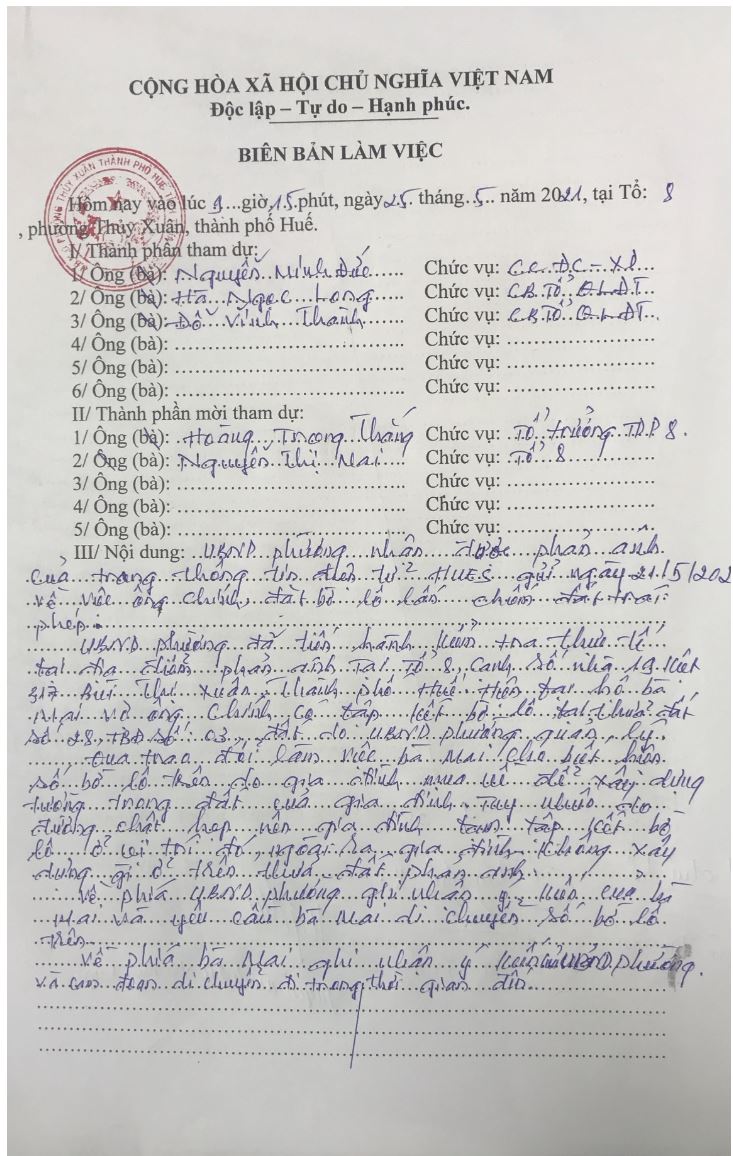 CỘNG HÒA XÃ HỘI CHỦ NGHĨA VIỆT NAM
Độc lập – Tự do – Hạnh phúc.
BIÊN BẢN LÀM VIỆC
Hôm nay vào lúc 9 giờ 15 phút, ngày 25 tháng 5 năm 2021, tại Tổ: 8
, phường Thủy Xuân, thành phố Huế.
I/ Thành phần tham dự:
1/ Ông (bà): Nguyễn Minh Đức Chức vụ: CC. ĐC - XD
2/ Ông (bà): Hà Ngọc Long Chức vụ: CB Tổ QLĐT
3/ Ông (bà): Đỗ Vĩnh Thành Chức vụ: CB Tổ QLĐT
4/ Ông (bà): Chức vụ:
5/ Ông (bà): Chức vụ:
6/ Ông (bà): Chức vụ:
II/ Thành phần mời tham dự:
1/ Ông (bà): Hoàng Trọng Thắng Chức vụ: Tổ trưởng TDP 8.
2/ Ông (bà): Nguyễn Thị Mai Chức vụ: Tổ 8
3/ Ông (bà): Chức vụ:
4/ Ông (bà): Chức vụ:
5/ Ông (bà): Chức vụ:
III/ Nội dung: UBND phường nhận được phản ánh
của trang thông tin điện tử HUES gửi ngày 21/5/202
về việc ông Chính, đặt bờ lô lấn chiếm đất trái
phép.
UBND phường đã tiến hành kiểm tra thực tế
tại địa điểm phản ánh Tại Tổ 8, cạnh số nhà 19 kiệt
317 Bùi Thị Xuân, Thành phố Huế. Hiện tại hộ bà
Mai và ông Chính có tập kết bờ lô tại thửa đất
số 28, TBĐ số: 03, đất do UBND phường quản lý.
Qua trao đổi làm việc bà Mai cho biết hiện
số bờ lô trên do gia đình mua về để xây dựng
tường trong đất của gia đình. Tuy nhiên do
đường chật hẹp nên gia đình tạm tập kết bờ
lô ở vị trí đó, ngoài ra gia đình không xây
dựng gì ở trên thửa đất phản ánh.
Về phía UBND phường ghi nhận ý kiến của bà
Mai và yêu cầu bà Mai di chuyển số bờ lô
trên.
Về phía bà Mai ghi nhận ý kiến UBND phường
và cam đoan di chuyển đi trong thời gian đến.